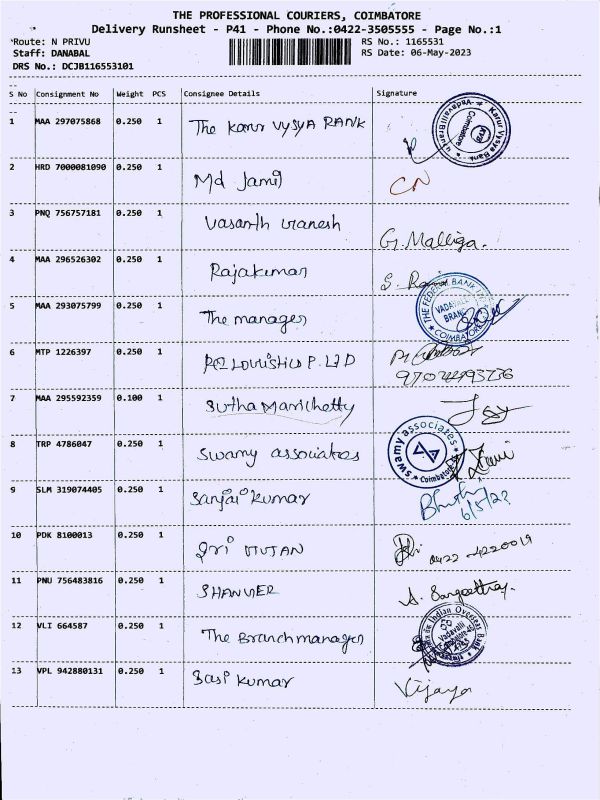 THE PROFESSIONAL COURIERS, COIMBATORE
Delivery Runsheet - P41 - Phone No.:0422-3505555 - Page No.:1
Route: N PRIVU RS No.: 1165531
Staff: DANABAL RS Date: 06-May-2023
DRS No.: DCJB116553101
S No Consignment No Weight PCS Consignee Details Signature
1 MAA 297075868 0.250 1 The Karur VYSYA BANK Karur Vysya Bank Vadavalli Branch Coimbatore KVB
2 HRD 7000081090 0.250 1 Md Jamil CN
3 PNQ 756757181 0.250 1 Vasanth Ganesh G. Malliga.
4 MAA 296526302 0.250 1 Rajakumar S.
5 MAA 293075799 0.250 1 The manager THE FEDERAL BANK VADAVALLI BRANCH COIMBATORE
6 MTP 1226397 0.250 1 P. LTD
7 MAA 295592359 0.100 1 Sutha Marichetty
8 TRP 4786047 0.250 1 Swamy associates swamy associates Coimbatore
9 SLM 319074405 0.250 1 Sanjai Kumar 6/5/23
10 PDK 8100013 0.250 1 Sri 0422-4220019
11 PNU 756483816 0.250 1 A. Sangeetha
12 VLI 664587 0.250 1 The Branch manager Indian Overseas Bank Vadavalli
13 VPL 942880131 0.250 1 Sasi Kumar Vijaya